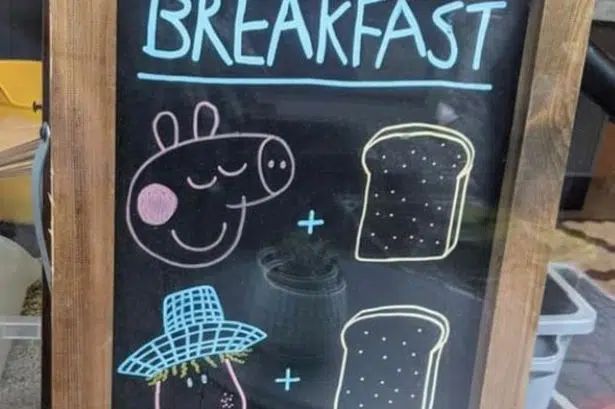 BREAKFAST
+
+